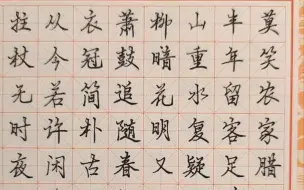 莫笑农家腊
丰年留客足
山重水复疑
柳暗花明又
萧鼓追随春
衣冠简朴古
从今若许闲
拄杖无时夜